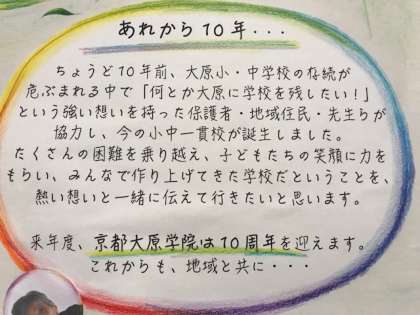 あれから10年・・・
ちょうど10年前、大原小・中学校の存続が
危ぶまれる中で「何とか大原に学校を残したい！」
という強い想いを持った保護者・地域住民・先生らが
協力し、今の小中一貫校が誕生しました。
たくさんの困難を乗り越え、子どもたちの笑顔に力を
もらい、みんなで作り上げてきた学校だということを、
熱い想いと一緒に伝えて行きたいと思います。
来年度、京都大原学院は10周年を迎えます。
これからも、地域と共に・・・